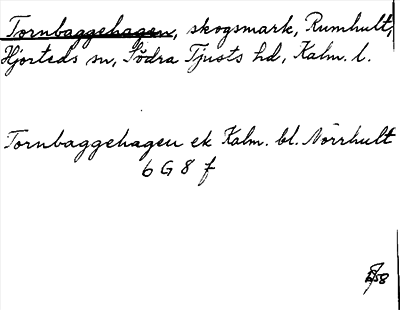 Tornbaggehagen, skogsmark, Rumhult,
Hjorteds sn, Södra Tjusts hd, Kalm. l.
Tornbaggehagen ek Kalm. bl. Norrhult
6 G 8 f